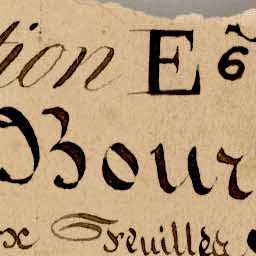 tion E 6
Bour
x Feuilles